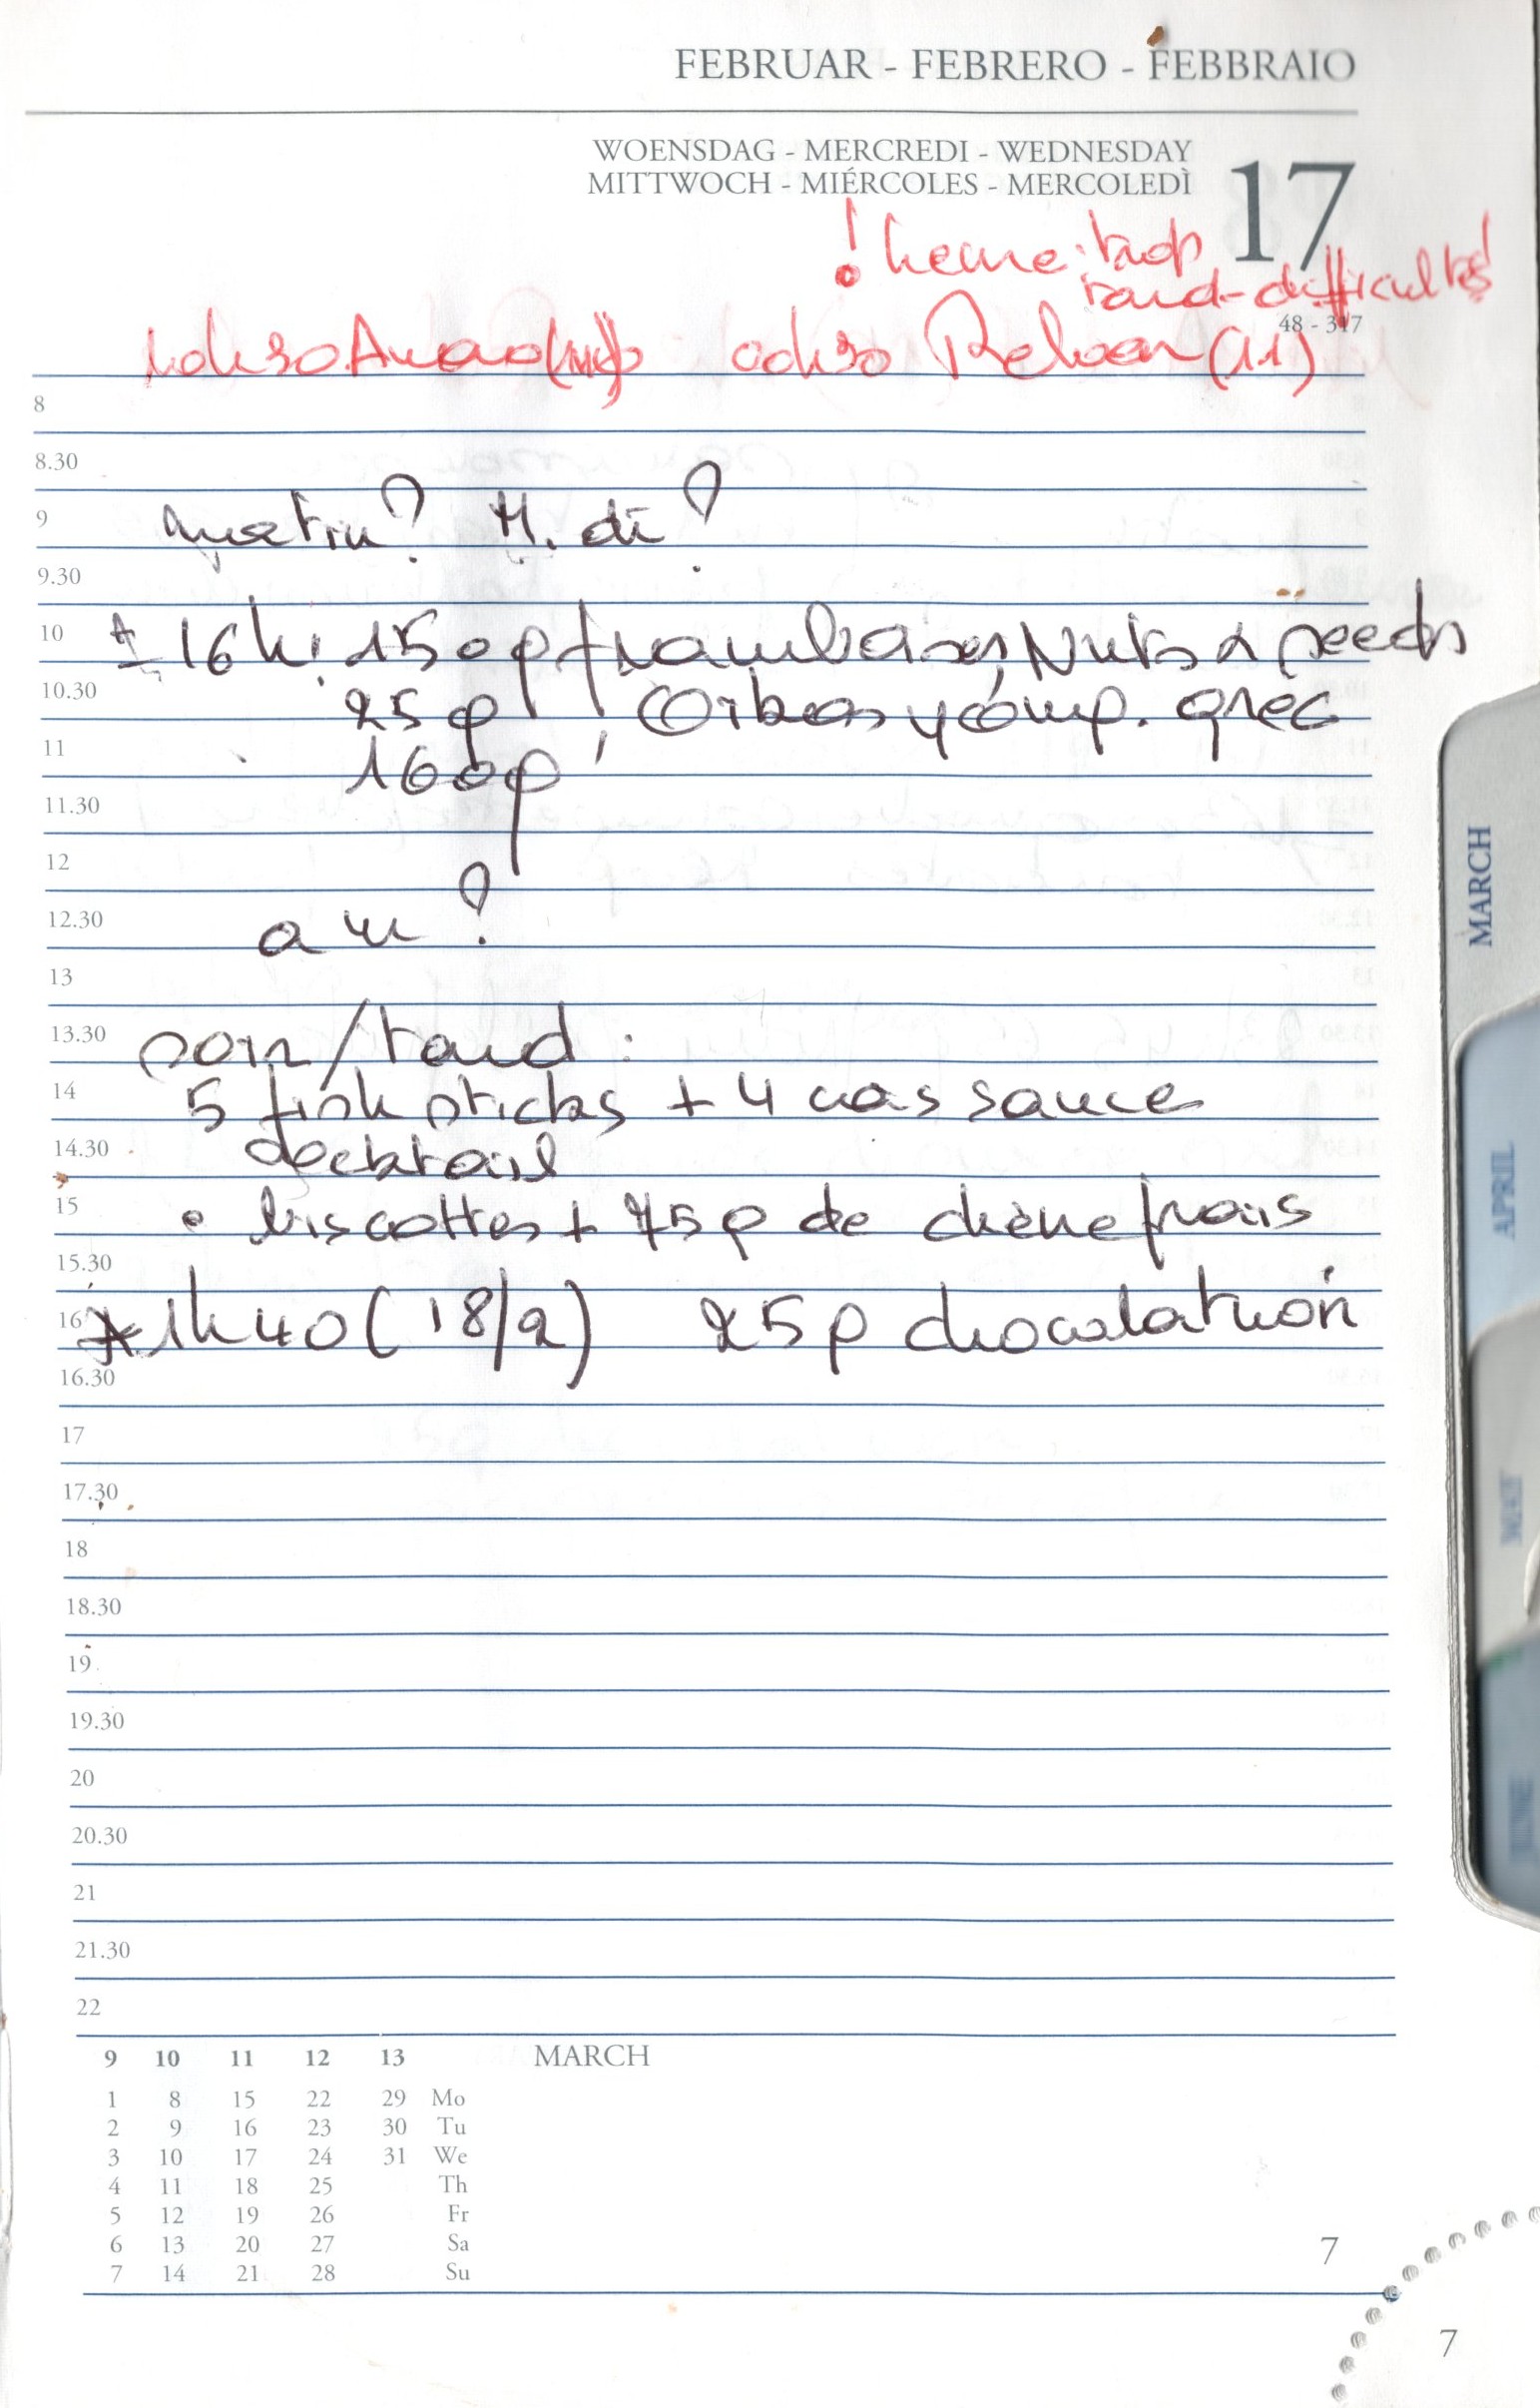 FEBRUAR - FEBRERO - FEBBRAIO
WOENSDAG - MERCREDI - WEDNESDAY
MITTWOCH - MIÉRCOLES - MERCOLEDÌ
17
! heure: trop
tard - difficultés!
48 - 317
(11)
8
8.30
9 matin? Midi?
9.30
10 ± 16h: 150g framboises, Nuts & seeds
10.30 25g, Oikos y comp. grec
11 160g
11.30
12
12.30 am?
13
13.30 soir/tard:
14 5 fish sticks + 4 cas sauce
14.30 cocktail
15 • biscottes + 75g de chèvre frais
15.30
16 * 1h40 (18/2) 25g chocolat noir
16.30
17
17.30
18
18.30
19
19.30
20
20.30
21
21.30
22
9 10 11 12 13 MARCH
1 8 15 22 29 Mo
2 9 16 23 30 Tu
3 10 17 24 31 We
4 11 18 25 Th
5 12 19 26 Fr
6 13 20 27 Sa
7 14 21 28 Su
7
7
MARCH
APRIL